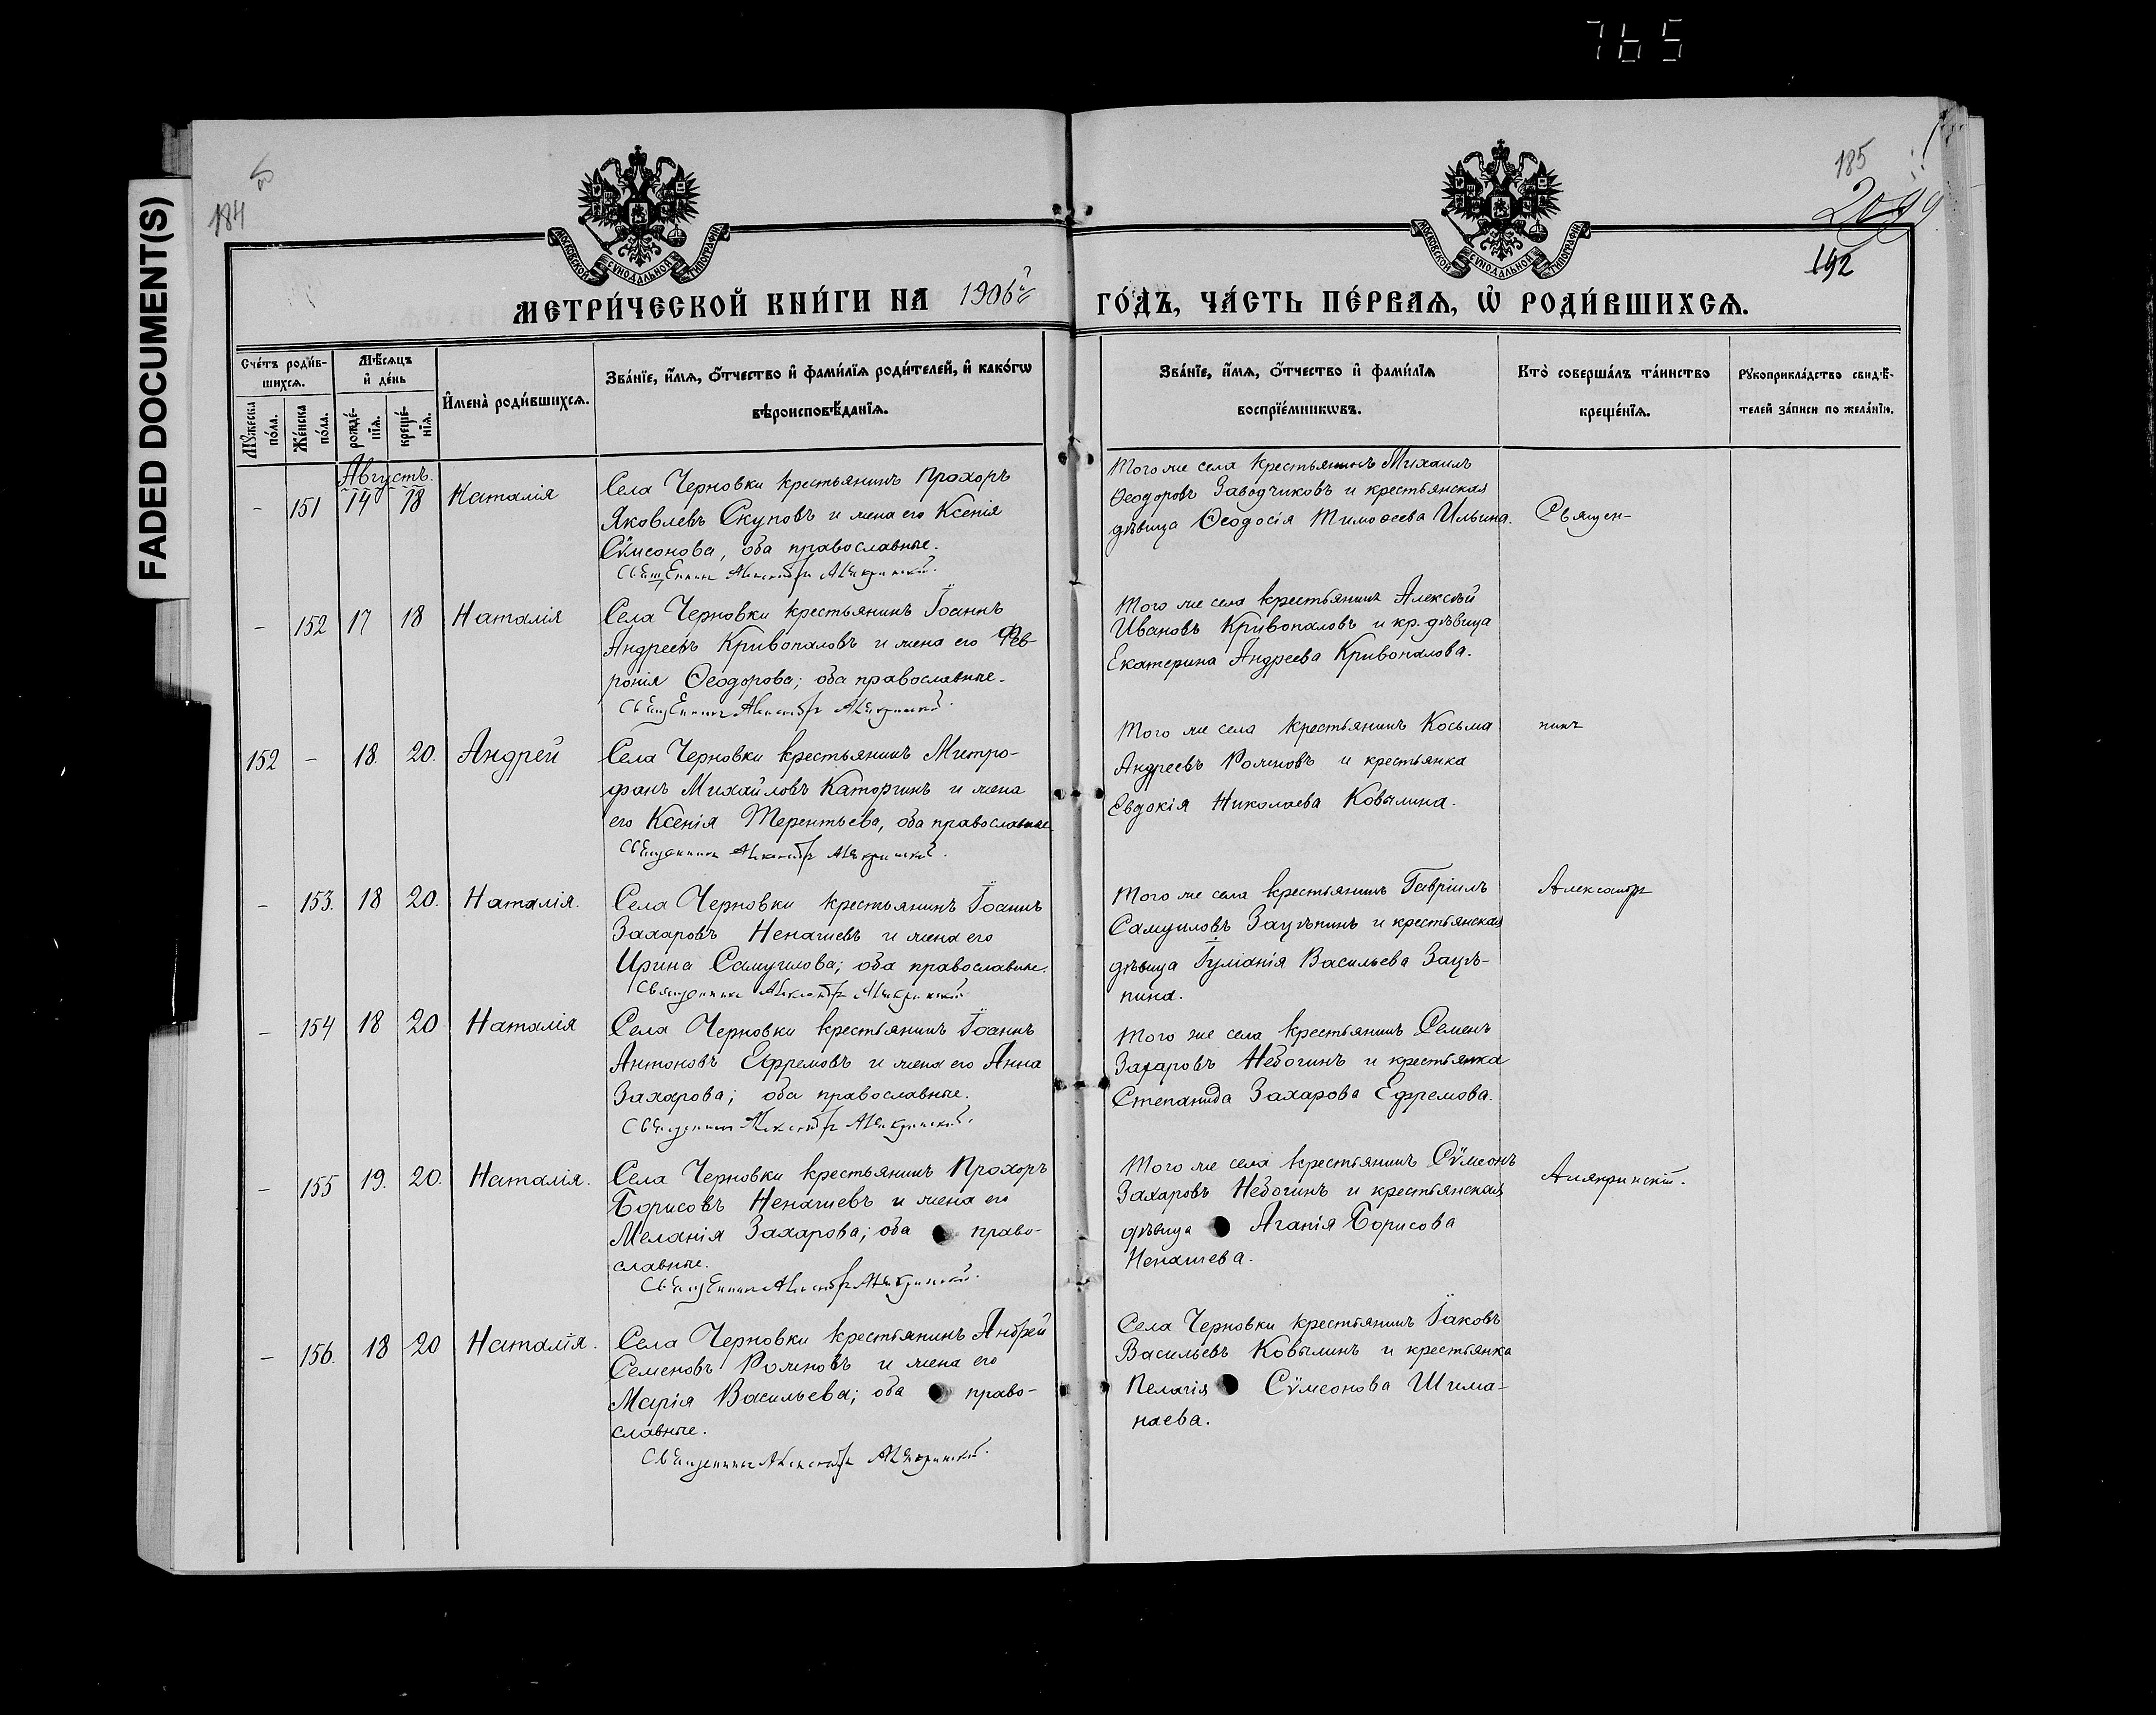 765
FADED DOCUMENT(S)
184
185
192
МОСКОВСКОЙ СѴНОДАЛЬНОЙ ТИПОГРАФІИ
МОСКОВСКОЙ СѴНОДАЛЬНОЙ ТИПОГРАФІИ
МЕТРИ́ЧЕСКОЙ КНИ́ГИ НА 1906й ГО́ДЪ, ЧА́СТЬ ПЕ́РВАѦ, Ѡ҆ РОДИ́ВШИХСѦ.
Сче́тъ роди́в-
шихсѧ.
Мꙋ́жеска по́ла.
Же́нска по́ла.
Мѣ́сѧцъ
и҆ де́нь
рожде́-
нїѧ.
креще́-
нїѧ.
И҆мена̀ роди́вшихсѧ.
Зва́нїе, и҆́мѧ, ѻ҆́тчество и҆ фами́лїѧ роди́телей, и҆ како́гѡ
вѣроисповѣ́данїѧ.
Зва́нїе, и҆́мѧ, ѻ҆́тчество и҆ фами́лїѧ
воспрїе́мникѡвъ.
Кто̀ соверша́лъ та́инство
креще́нїѧ.
Рꙋкоприкла́дство свидѣ́-
телей за́писи по жела́нїю.
Августъ.
- 151 14 18 Наталія
Села Черновки крестьянинъ Прохоръ
Яковлевъ Скуповъ и жена его Ксенія
Сѵмеонова, оба православные.
Священникъ Александръ
Того же села крестьянинъ Михаилъ
Ѳеодоровъ Заводчиковъ и крестьянская
дѣвица Ѳеодосія Тимоѳеева Ильина.
Священ-
- 152 17 18 Наталія
Села Черновки крестьянинъ Іоаннъ
Андреевъ Кривопаловъ и жена его Фев-
ронія Ѳеодорова; оба православные.
Священникъ Александръ
Того же села крестьянинъ Алексѣй
Ивановъ Кривопаловъ и кр. дѣвица
Екатерина Андреева Кривопалова.
152 - 18. 20. Андрей
Села Черновки крестьянинъ Митро-
фанъ Михайловъ Каторгинъ и жена
его Ксенія Терентьева, оба православные
Священникъ Александръ
Того же села крестьянинъ Косьма
Андреевъ Роменовъ и крестьянка
Евдокія Николаева Ковылина.
никъ
- 153. 18 20. Наталія.
Села Черновки крестьянинъ Іоаннъ
Захаровъ Ненашевъ и жена его
Ирина Самуилова; оба православные.
Священникъ Александръ
Того же села крестьянинъ Гавріилъ
Самуиловъ Зацѣпинъ и крестьянская
дѣвица Іуліанія Васильева Зацѣ-
пина.
Александръ
- 154 18 20 Наталія
Села Черновки крестьянинъ Іоаннъ
Антоновъ Ефремовъ и жена его Анна
Захарова; оба православные.
Священникъ Александръ
Того же села крестьянинъ Семенъ
Захаровъ Небогинъ и крестьянка
Степанида Захарова Ефремова.
- 155 19. 20. Наталія.
Села Черновки крестьянинъ Прохоръ
Борисовъ Ненашевъ и жена его
Меланія Захарова; оба право-
славные.
Священникъ Александръ
Того же села крестьянинъ Сѵмеонъ
Захаровъ Небогинъ и крестьянская
дѣвица Агапія Борисова
Ненашева.
- 156. 18 20 Наталія.
Села Черновки крестьянинъ Андрей
Семеновъ Роменовъ и жена его
Марія Васильева; оба право-
славные.
Священникъ Александръ
Села Черновки крестьянинъ Іаковъ
Васильевъ Ковылинъ и крестьянка
Пелагія Сѵмеонова Шима-
наева.